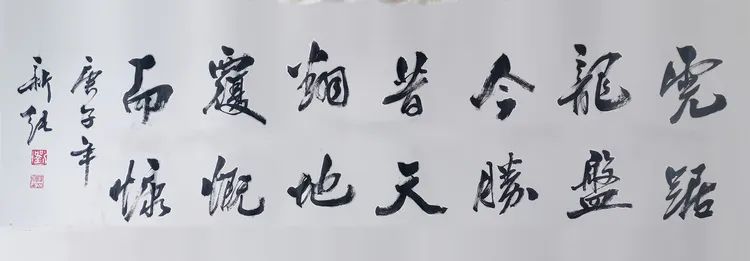 虎踞
龍盤
今勝
昔天
翻地
覆慨
而慷
庚子年
新